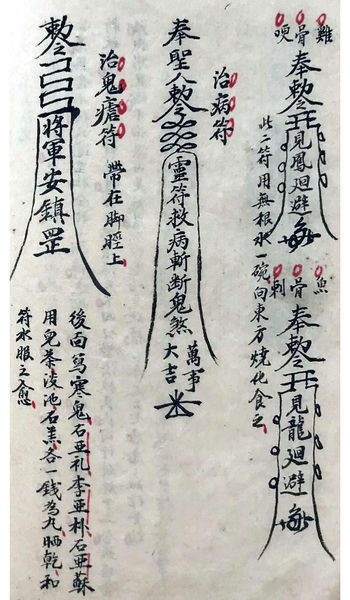 雞骨哽
奉敕令見鳳迴避
此二符用無根水一碗向東方燒化食之
魚骨刺
奉敕令見龍迴避
治病符
奉聖人敕令靈符救病斬斷鬼煞
萬事大吉
治鬼瘧符
帶在脚脛上
敕令將軍安鎮罡
後面寫寒鬼石亜礼李亜林石亜蘇
用兒茶淩池石羔各一錢為丸晒乾和
符水服之愈